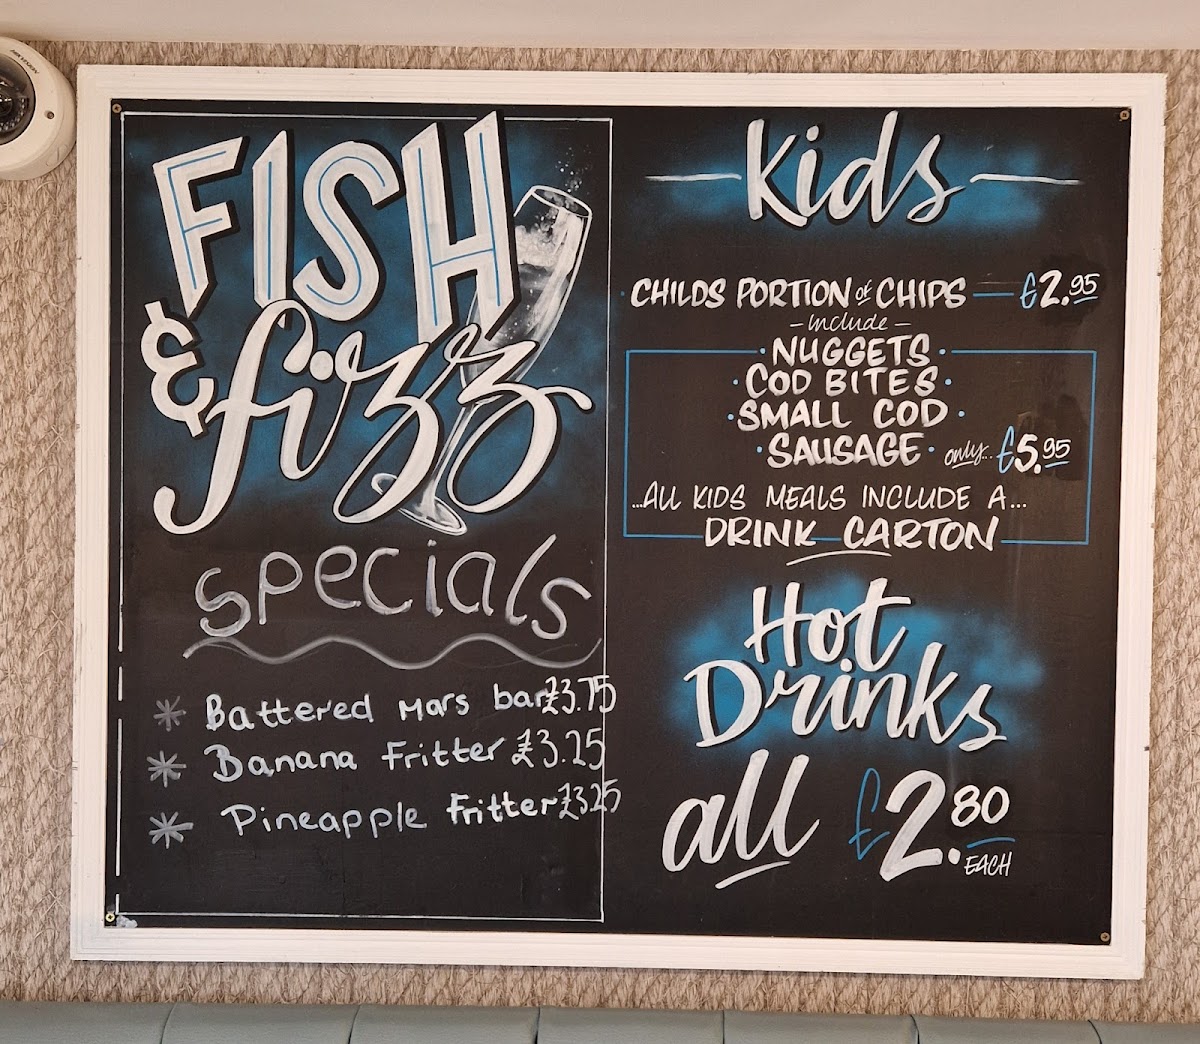 FISH
& fizz
Specials
Battered Mars bar £3.75
Banana Fritter £3.25
Pineapple Fritter £3.25
Kids
CHILDS PORTION of CHIPS £2.95
- include -
• NUGGETS •
• COD BITES •
• SMALL COD •
• SAUSAGE • only... £5.95
...ALL KIDS MEALS INCLUDE A...
DRINK CARTON
Hot
Drinks
all £2.80
EACH